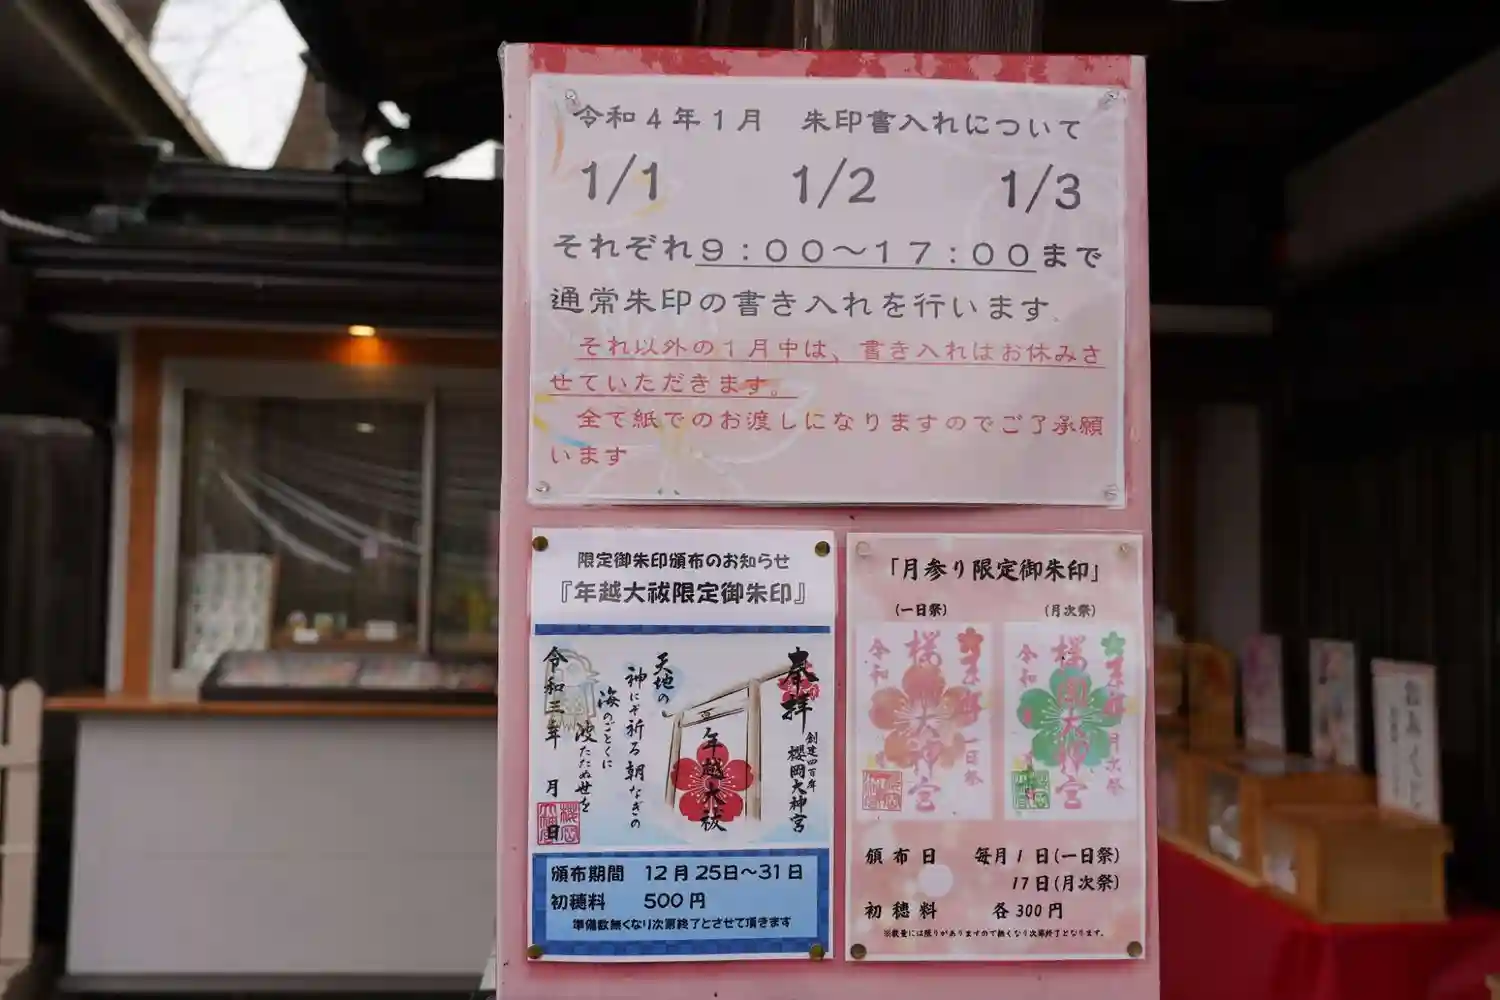 令和４年１月　朱印書入れについて
1/1　1/2　1/3
それぞれ９：００～１７：００まで
通常朱印の書き入れを行います．
それ以外の１月中は、書き入れはお休みさ
せていただきます。
全て紙でのお渡しになりますのでご了承願
います
限定御朱印頒布のお知らせ
『年越大祓限定御朱印』
奉拝
創建四百年
櫻岡大神宮
年越大祓
天地の
神にぞ祈る朝なぎの
海のごとくに
波たたぬ世を
令和三年　月　日
頒布期間　12月25日～31日
初穂料　500円
準備数無くなり次第終了とさせて頂きます
「月参り限定御朱印」
(一日祭)　(月次祭)
櫻岡大神宮
一日祭
令和
櫻岡大神宮
月次祭
令和
頒布日　毎月1日(一日祭)
17日(月次祭)
初穂料　各300円
※数量には限りがありますので無くなり次第終了となります。